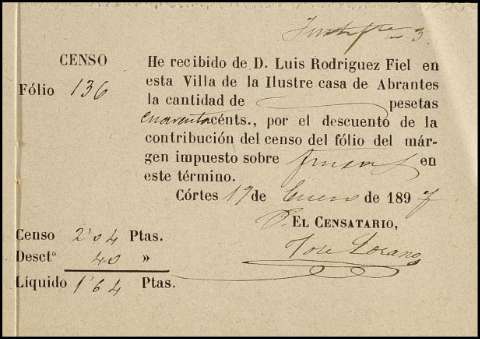 3.
CENSO
Fólio 136
He recibido de D. Luis Rodriguez Fiel en
esta Villa de la Ilustre casa de Abrantes
la cantidad de pesetas
cuarenta cénts., por el descuento de la
contribución del censo del fólio del már-
gen impuesto sobre fincas en
este término.
Córtes 19 de Enero de 1897
P. EL CENSATARIO,
Jose Lozano
Censo 2'04 Ptas.
Desct° 40 »
Líquido 1'64 Ptas.